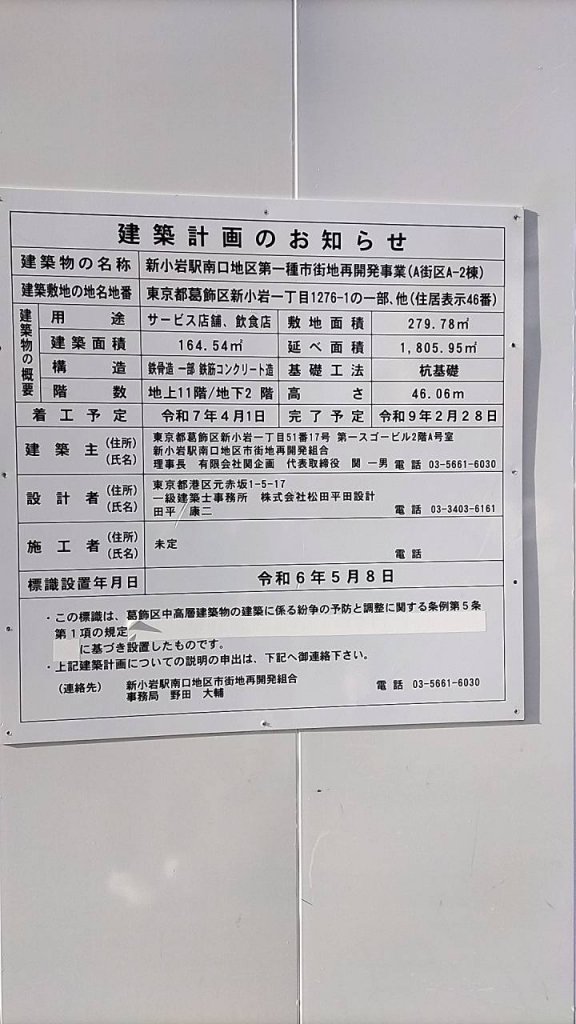 建築計画のお知らせ
建築物の名称 新小岩駅南口地区第一種市街地再開発事業(A街区A-2棟)
建築敷地の地名地番 東京都葛飾区新小岩一丁目1276-1の一部、他(住居表示46番)
建築物の概要
用途 サービス店舗、飲食店 敷地面積 279.78㎡
建築面積 164.54㎡ 延べ面積 1,805.95㎡
構造 鉄骨造 一部 鉄筋コンクリート造 基礎工法 杭基礎
階数 地上11階/地下2 階 高さ 46.06m
着工予定 令和7年4月1日 完了予定 令和9年2月28日
建築主 (住所) 東京都葛飾区新小岩一丁目51番17号 第一スゴービル2階A号室
(氏名) 新小岩駅南口地区市街地再開発組合
理事長 有限会社関企画 代表取締役 関 一男 電話 03-5661-6030
設計者 (住所) 東京都港区元赤坂1-5-17
(氏名) 一級建築士事務所 株式会社松田平田設計
田平 康二 電話 03-3403-6161
施工者 (住所) 未定
(氏名) 電話
標識設置年月日 令和6年5月8日
・この標識は、葛飾区中高層建築物の建築に係る紛争の予防と調整に関する条例第5条
第1項の規定
に基づき設置したものです。
・上記建築計画についての説明の申出は、下記へ御連絡下さい。
(連絡先) 新小岩駅南口地区市街地再開発組合 電話 03-5661-6030
事務局 野田 大輔